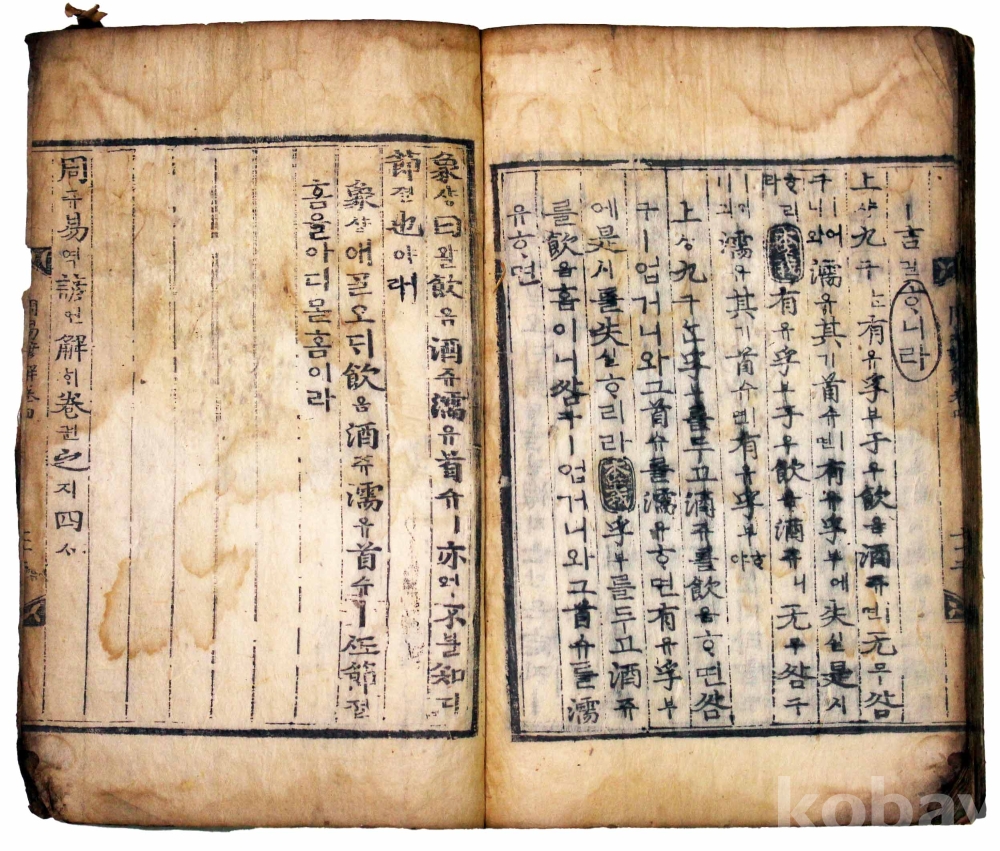 ㅣ吉길ᄒᆞ니라
上샹九구ᄂᆞᆫ有유孚부于우飮음酒쥬ㅣ면无무咎
구ㅣ어니와濡유其기首슈ㅣ면有유孚부에失실是시
ᄒᆞ리라本義有유孚부于우飮음酒쥬ㅣ니无무咎구
濡유其기首슈ㅣ면有유孚부ᄒᆞ야
上샹九구ᄂᆞᆫ孚부를두고酒쥬를飮음ᄒᆞ면咎
구ㅣ업거니와그首슈를濡유ᄒᆞ면有유孚부
에是시를失실ᄒᆞ리라本義孚부를두고酒쥬
를飮음홈이니咎구ㅣ업거니와그首슈를濡
유ᄒᆞ면
象샹曰왈飮음酒쥬濡유首슈ㅣ亦역不불知디
節졀也야ㅣ라
象샹애ᄀᆞᆯ오ᄃᆡ飮음酒쥬濡유首슈ㅣᄯᅩ節졀
홈을아디몯홈이라
周쥬易역諺언解ᄒᆡ卷권之지四ᄉᆞ
kobay